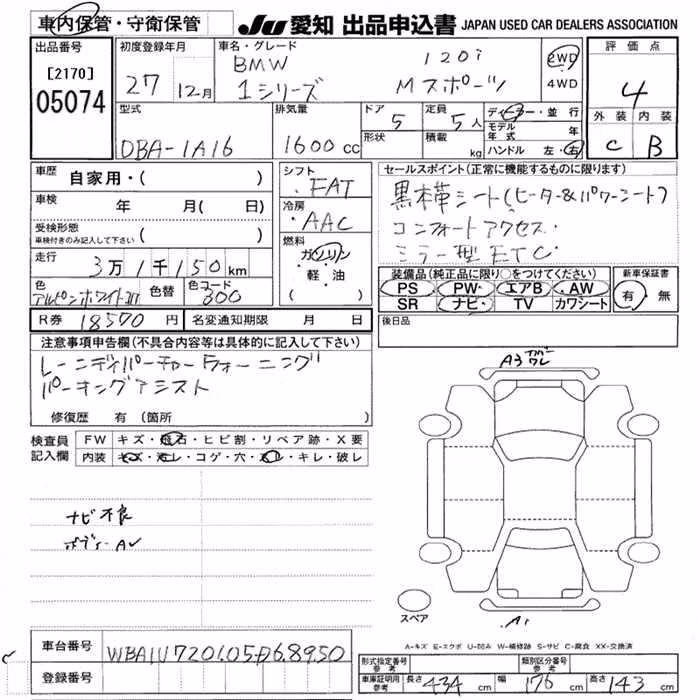 車内保管・守衛保管 JU 愛知 出品申込書 JAPAN USED CAR DEALERS ASSOCIATION
出品番号 初度登録年月 車名・グレード 評価点
[2170] 27 12月 BMW 120i 2WD
05074 1シリーズ Mスポーツ 4WD 4
型式 排気量 ドア 5 定員 5人 ディーラー・並行 外装 内装
DBA-1A16 1600cc 形状 積載 kg モデル年式 年 C B
ハンドル 左・右
車歴 自家用・( ) シフト セールスポイント(正常に機能するものに限ります)
車検 年 月( 日) FAT 黒本革シート(ヒーター&パワーシート)
受検形態 冷房 コンフォートアクセス・
車検付きのみ記入して下さい ( ) AAC ミラー型ETC
走行 3万1千150km 燃料 ガソリン 装備品(純正品に限り○をつけてください) 新車保証書
色 アルピンホワイトIII 色替 色コード 300 軽・油 PS PW エアB AW 有・無
( ) SR ナビ TV カワシート
R券 18570円 名変通知期限 月 日 後日品
注意事項申告欄(不具合内容等は具体的に記入して下さい)
レーンディパーチャーウォーニング A3 カバーワレ
パーキングアシスト
修復歴 有 (箇所
検査員 FW キズ・飛石・ヒビ割・リペア跡・X要
記入欄 内装 キズ・汚レ・コゲ・穴・スレ・キレ・破レ
ナビ不良
ボディーAU
スペア A1
A-キズ E-エクボ U-凹み W-補修跡 S-サビ C-腐食 XX-交換済
車台番号 WBA1U7201.05-P68950 形式指定番号 参考 類別区分番号 参考
登録番号 車庫証明用 参考 長さ 434cm 幅 176cm 高さ 143cm